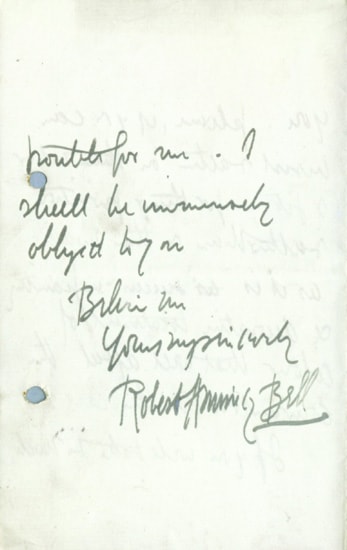 trouble for me . I
shall be immensely
obliged to you
Believe me
Yours very sincerely
Robert Anning Bell